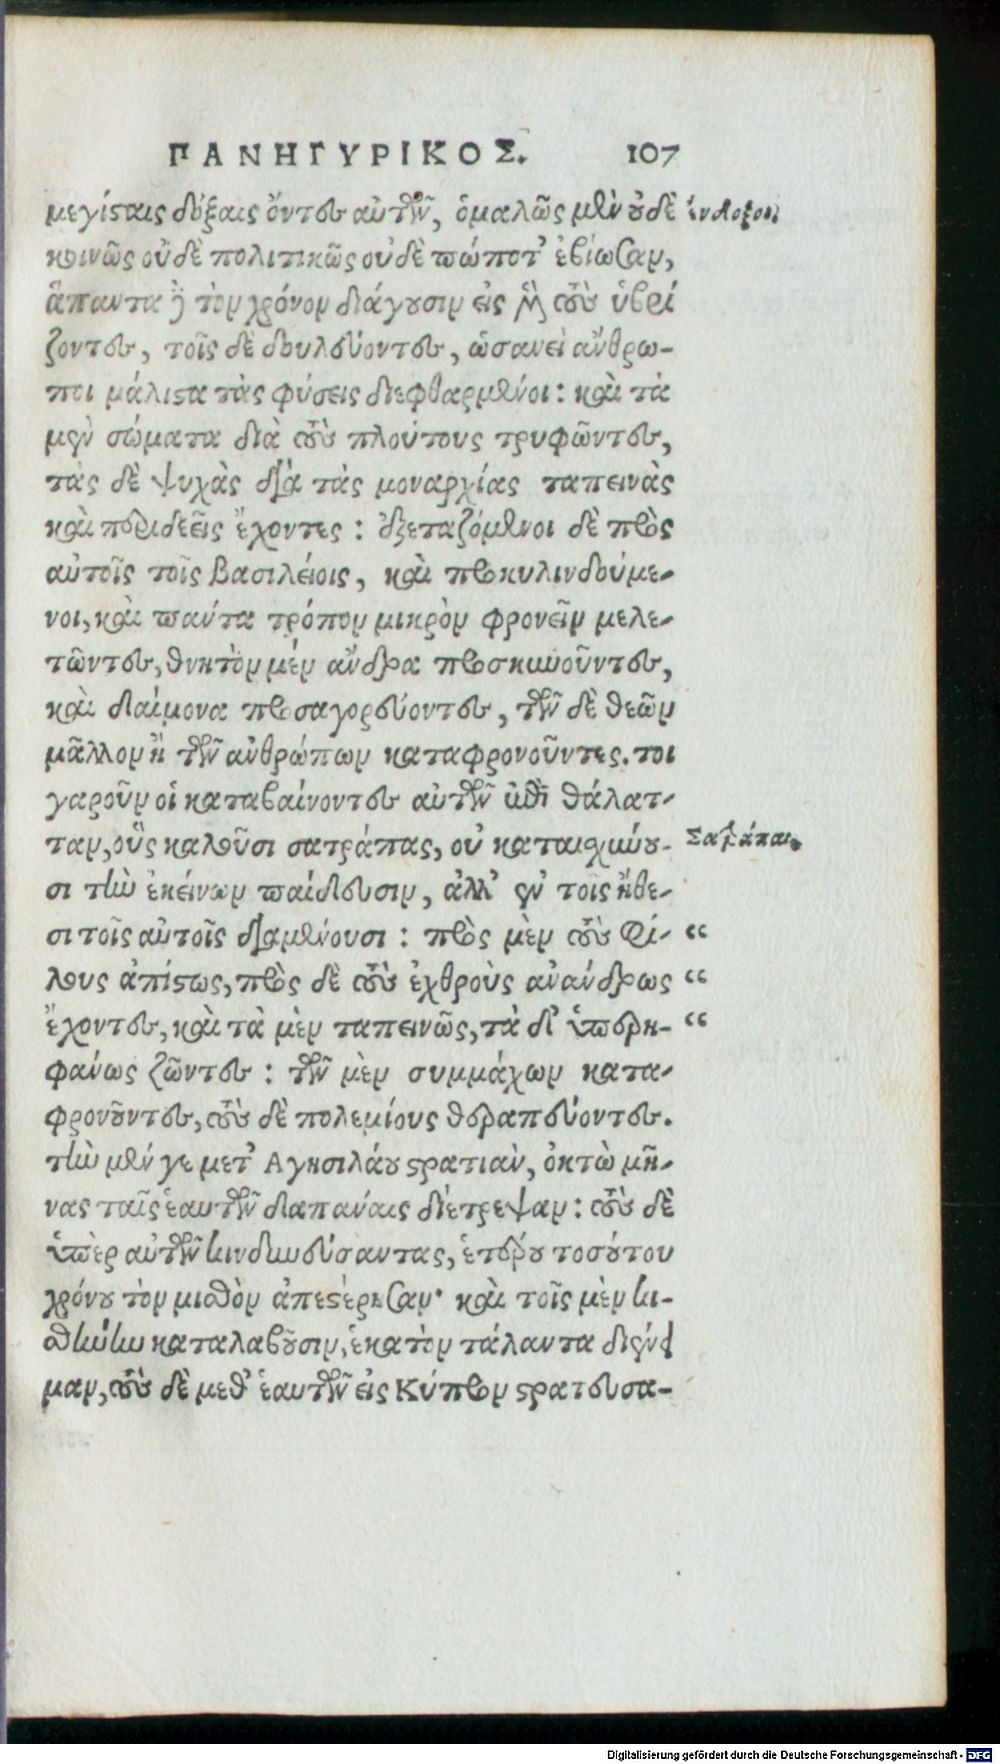 ΠΑΝΗΓΥΡΙΚΟΣ. 107
μεγίσταις δόξαις ὄντες αὐτῶν, ὁμαλῶς μὲν οὐδὲ ἔνδοξοι
κοινῶς οὐδὲ πολιτικῶς οὐδὲ πώποτ' ἐβίωσαν,
ἅπαντα δὲ τὸν χρόνον διάγουσιν εἰς μὲν τοὺς ὑβρί
ζοντες, τοῖς δὲ δουλεύοντες, ὡσανεὶ ἄνθρω-
ποι μάλιστα τὰς φύσεις διεφθαρμένοι: καὶ τὰ
μὲν σώματα διὰ τοὺς πλούτους τρυφῶντες,
τὰς δὲ ψυχὰς διὰ τὰς μοναρχίας ταπεινὰς
καὶ περιδεεῖς ἔχοντες: ἐξεταζόμενοι δὲ πρὸς
αὐτοῖς τοῖς βασιλείοις, καὶ προκυλινδούμε-
νοι, καὶ πάντα τρόπον μικρὸν φρονεῖν μελε-
τῶντες, θνητὸν μὲν ἄνδρα προσκυνοῦντες,
καὶ δαίμονα προσαγορεύοντες, τῶν δὲ θεῶν
μᾶλλον ἢ τῶν ἀνθρώπων καταφρονοῦντες. τοι
γαροῦν οἱ καταβαίνοντες αὐτῶν ἐπὶ θάλατ-
ταν, οὓς καλοῦσι σατράπας, οὐ καταισχύνου- Σατράπαι.
σι τὴν ἐκείνων παίδευσιν, ἀλλ' ἐν τοῖς ἤθε-
σι τοῖς αὐτοῖς διαμένουσι: πρὸς μὲν τοὺς φί- “
λους ἀπίστως, πρὸς δὲ τοὺς ἐχθροὺς ἀνάνδρως “
ἔχοντες, καὶ τὰ μὲν ταπεινῶς, τὰ δ' ὑπερη- “
φάνως ζῶντες: τῶν μὲν συμμάχων κατα-
φρονοῦντες, τοὺς δὲ πολεμίους θεραπεύοντες.
τὴν μέν γε μετ' Αγησιλάου στρατιὰν, ὀκτὼ μῆ-
νας ταῖς ἑαυτῶν δαπάναις διέτρεψαν: τοὺς δὲ
ὑπὲρ αὐτῶν κινδυνεύσαντας, ἑτέρου τοσούτου
χρόνου τὸν μισθὸν ἀπεστέρησαν· καὶ τοῖς μὲν κι-
σθήνην καταλαβοῦσιν, ἑκατὸν τάλαντα διένει
μαν, τοὺς δὲ μεθ' ἑαυτῶν εἰς Κύπρον στρατευσα-
Digitalisierung gefördert durch die Deutsche Forschungsgemeinschaft - DFG